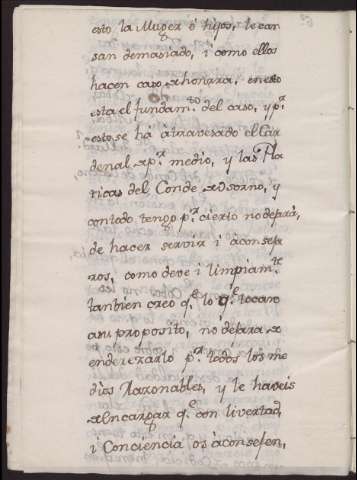 esto la Muger ó hijos, le can
san demasiado, i como ellos
hacen caso de honrra, en esto
esta el fundam.to del caso, y p.r
esto se há atravesado el Car
denal de p.r medio, y las Pla
ticas del Conde de Osorno, y
con todo tengo p.r cierto no dejará,
de hacer servir i aconsejar
ros, como deve i limpiam.te
tanbien creo q.e lo q.e tocare
a su proposito, no dejara de
enderezarlo p.r todos los me
dios Razonables, y le haveis
de Encargar q.e con livertad,
i Conciencia os aconsejen,